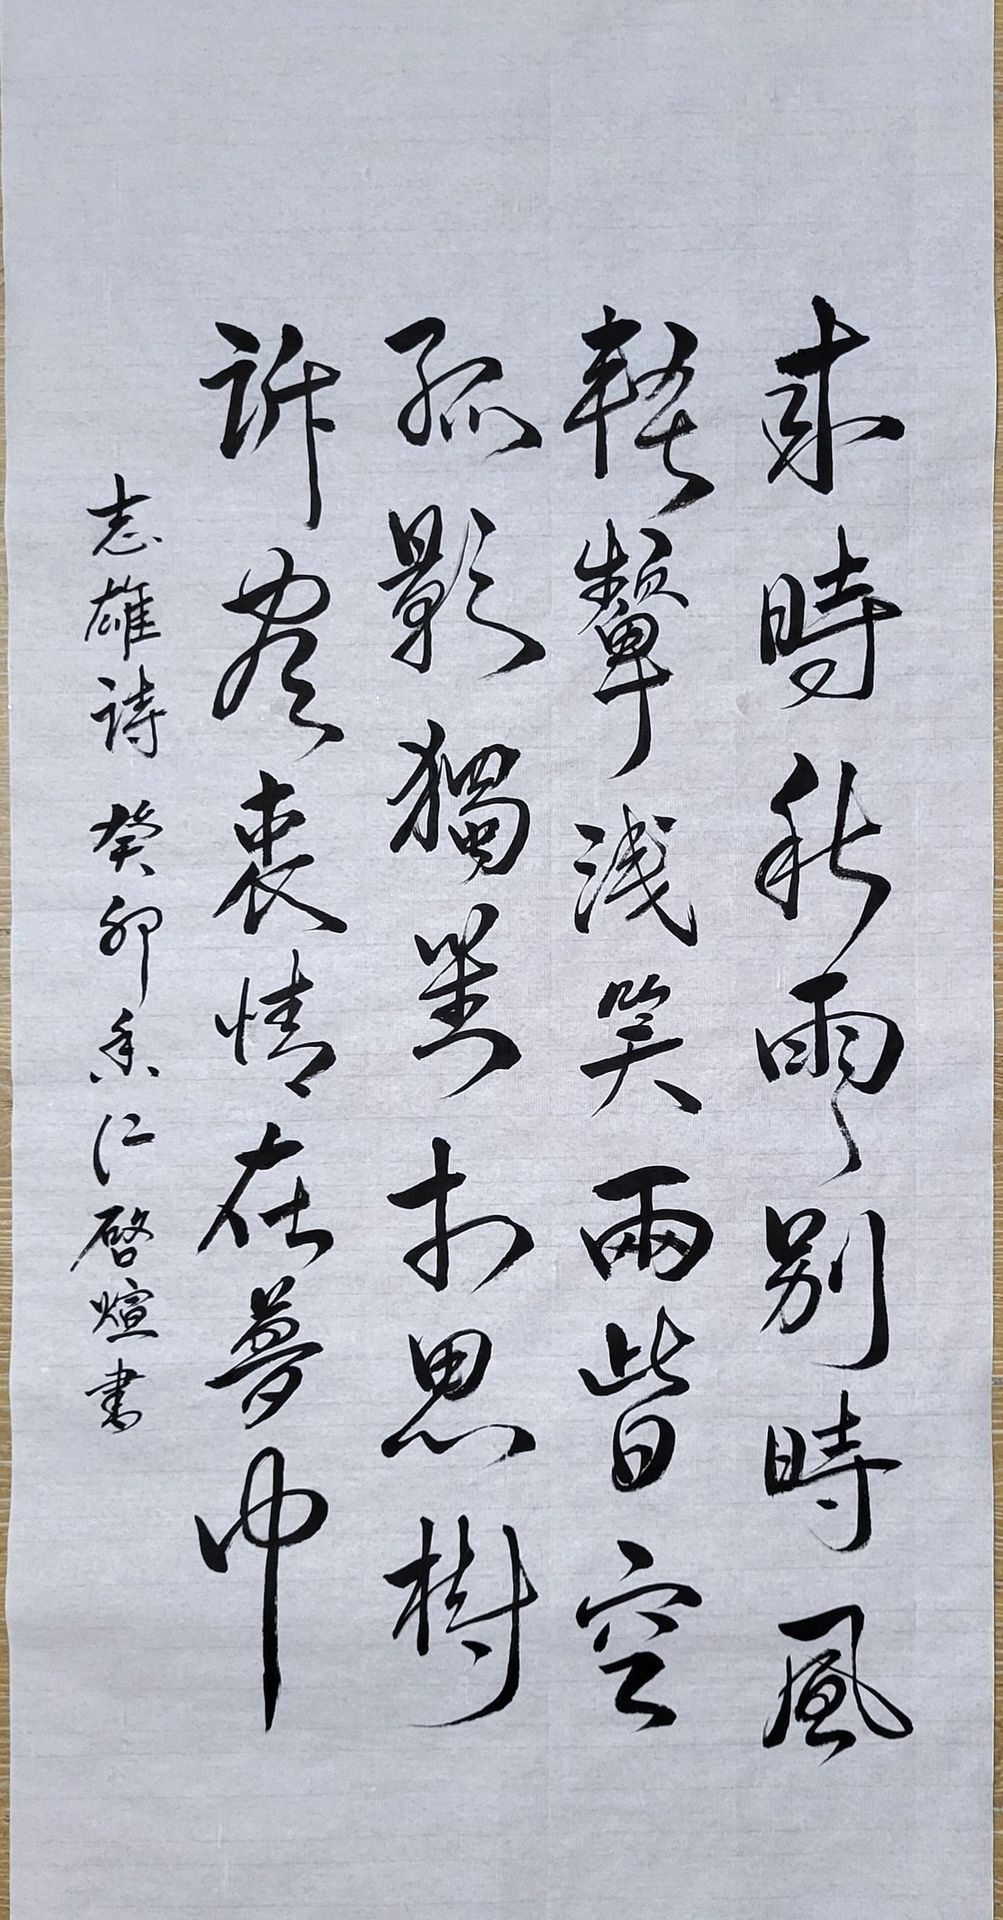 來時秋雨別時風
輕顰淺笑兩皆空
孤影獨對相思樹
訴盡衷情在夢中
志雄詩 癸卯 仁啓煊書